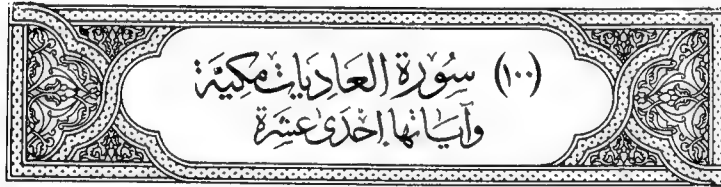 (١٠٠) سُورَة العَادِيَات مَكيَّة
وَآيَاتها إِحْدَى عَشِرَة